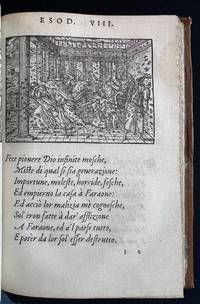 ESOD. VIII.
Fece piouere Dio infinite mosche,
Miste di qual si sia generazione:
Importune, moleste, horride, fosche,
Ed empierno la casa à Faraone:
Ed acciò lor malizia me cognosche,
Sol eron fatte à dar' afflizione
A Faraone, ed a'l paese tutto,
E poter da lor sol esser destrutto.